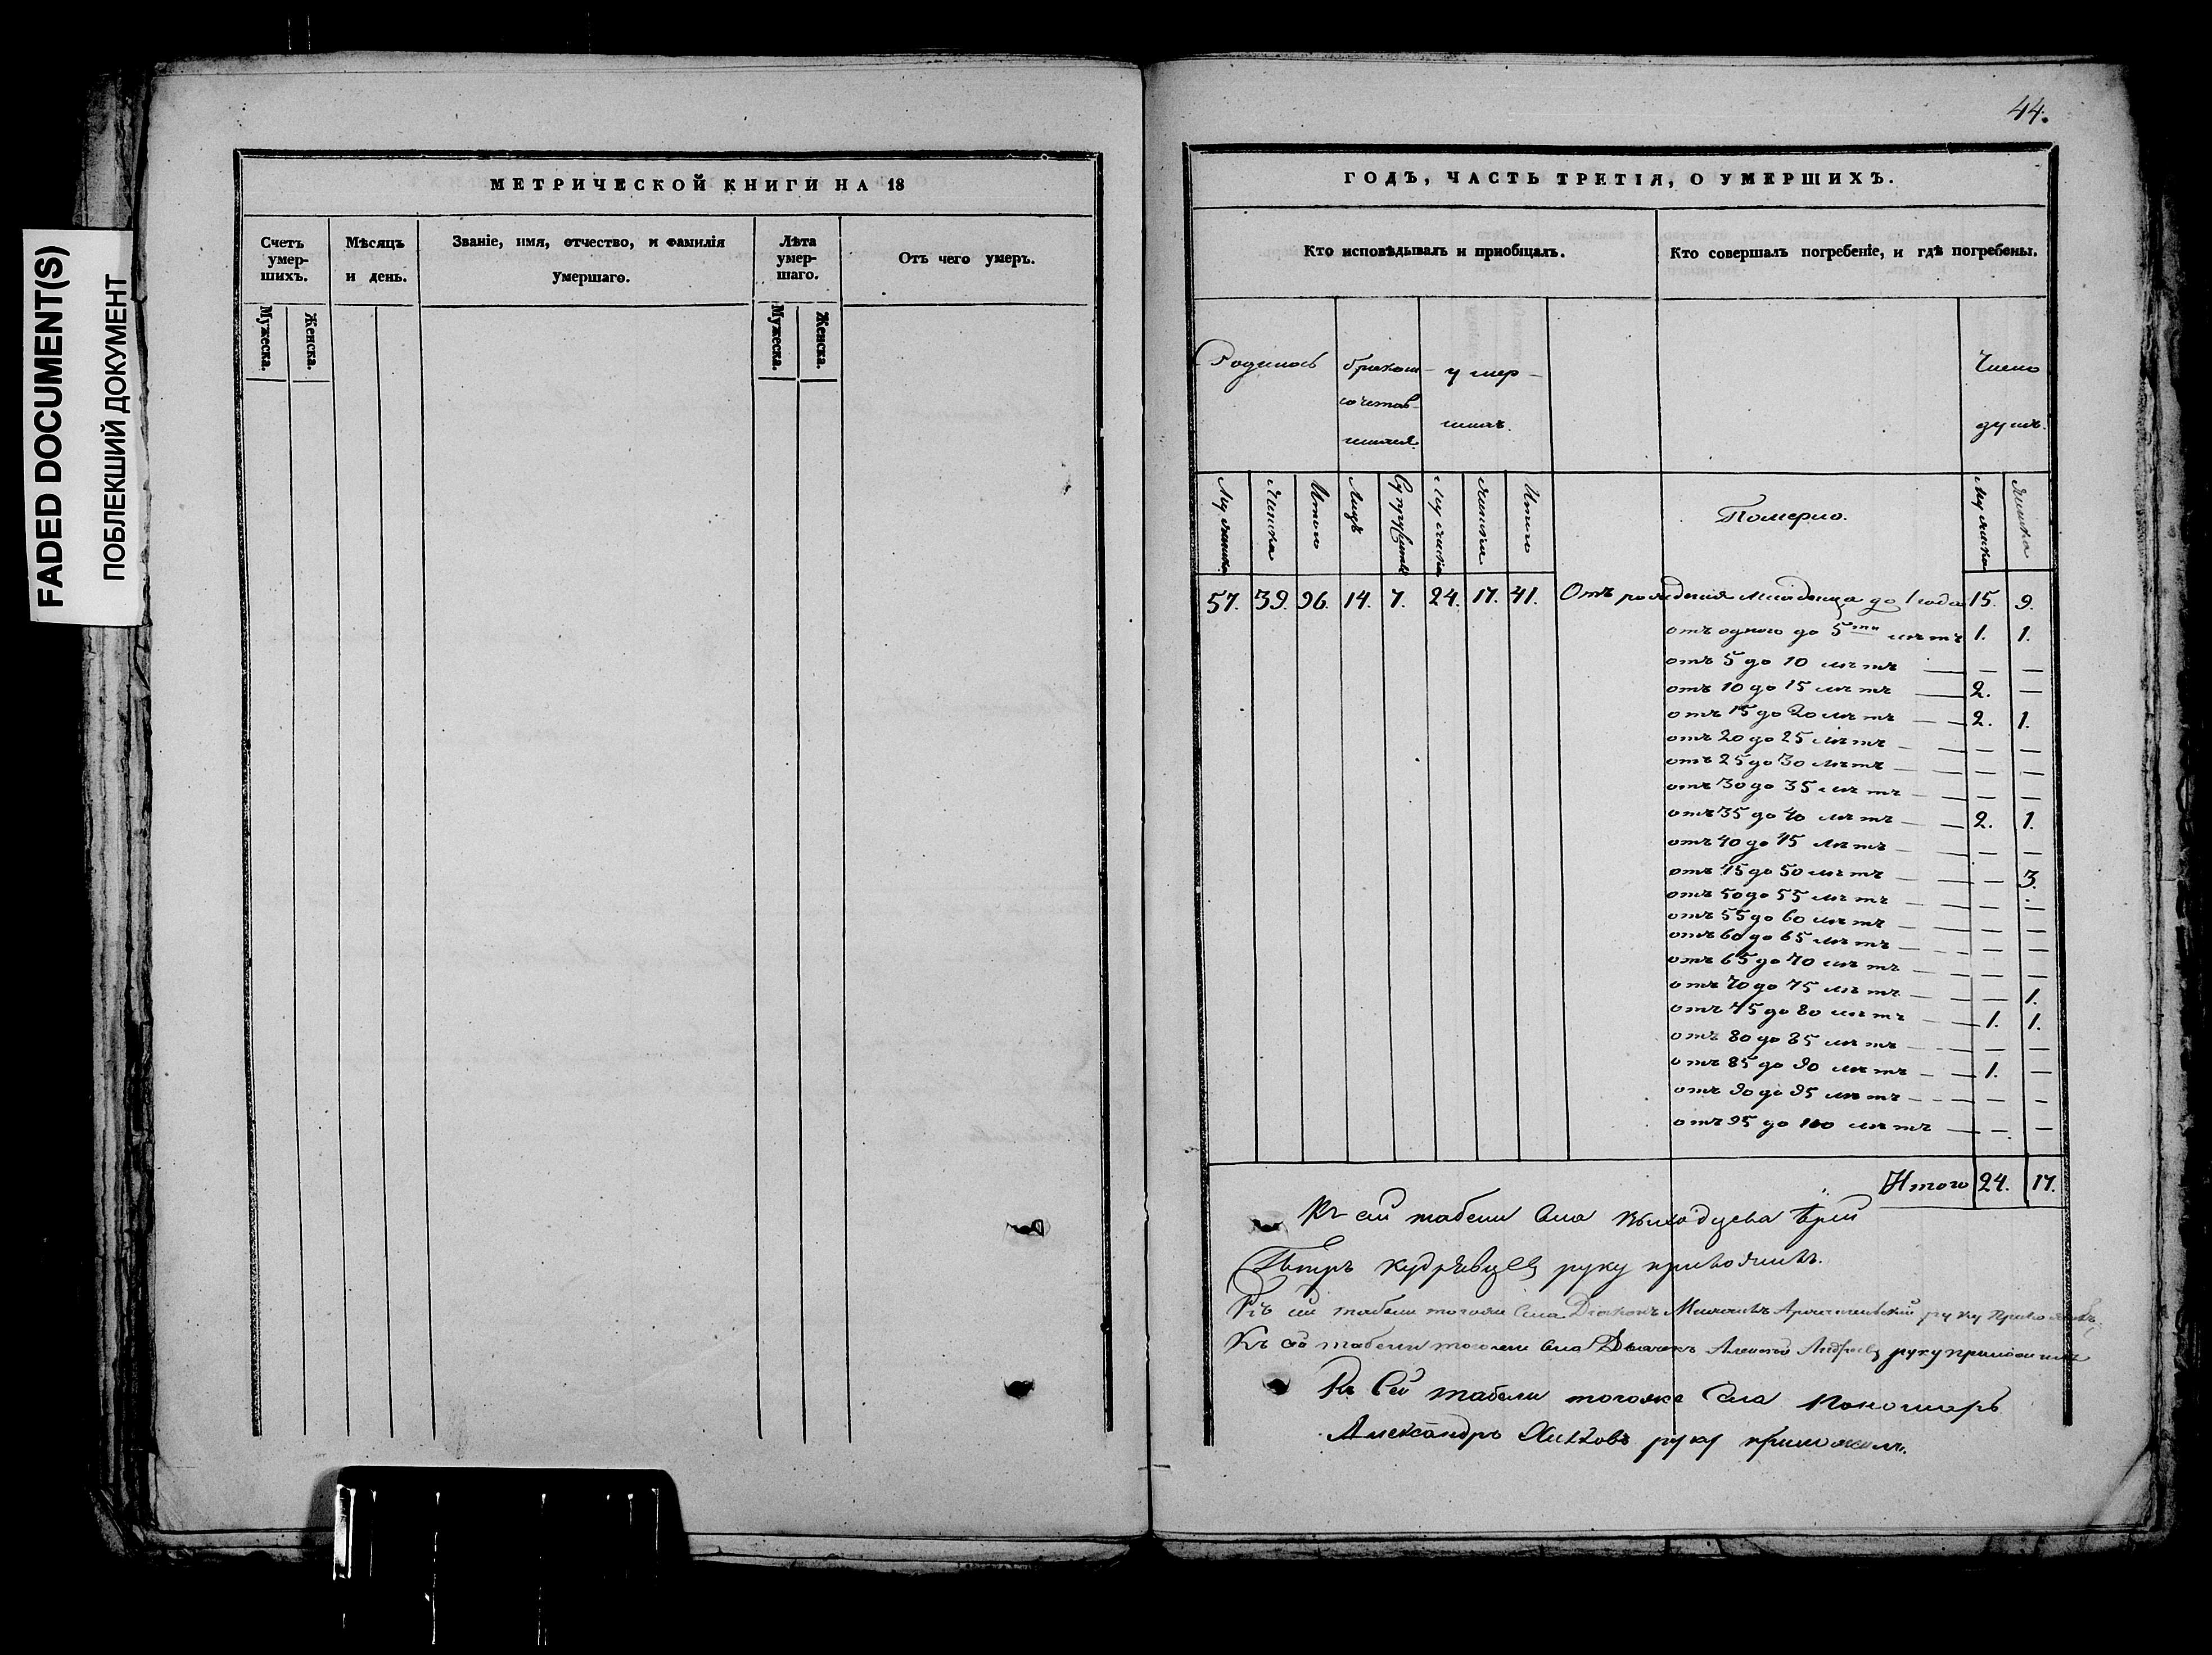 FADED DOCUMENT(S)
ПОБЛЕКШИЙ ДОКУМЕНТ
МЕТРИЧЕСКОЙ КНИГИ НА 18
Счетъ умер-шихъ.
Мѣсяцъ и день.
Званіе, имя, отчество, и фамилія умершаго.
Лѣта умер-шаго.
Отъ чего умеръ.
Мужеска. Женска. Мужеска. Женска.
44.
ГОДЪ, ЧАСТЬ ТРЕТІЯ, О УМЕРШИХЪ.
Кто исповѣдывалъ и приобщалъ. Кто совершалъ погребеніе, и гдѣ погребены.
Родилось
бракомъ сочетав-шихся
умер-шихъ.
Число душъ.
Мужеска Женска Итого Лицъ Супружествъ Мужеска Женска Итого Померло. Мужеска Женска
57. 39. 96. 14. 7. 24. 17. 41. Отъ рожденія младенца до 1 года 15. 9.
отъ одного до 5ти лѣтъ 1. 1.
отъ 5 до 10 лѣтъ — —
отъ 10 до 15 лѣтъ 2. —
отъ 15 до 20 лѣтъ 2. 1.
отъ 20 до 25 лѣтъ — —
отъ 25 до 30 лѣтъ — —
отъ 30 до 35 лѣтъ — —
отъ 35 до 40 лѣтъ 2. 1.
отъ 40 до 45 лѣтъ — —
отъ 45 до 50 лѣтъ — 3.
отъ 50 до 55 лѣтъ — —
отъ 55 до 60 лѣтъ — —
отъ 60 до 65 лѣтъ — —
отъ 65 до 70 лѣтъ — —
отъ 70 до 75 лѣтъ — 1.
отъ 75 до 80 лѣтъ 1. 1.
отъ 80 до 85 лѣтъ — —
отъ 85 до 90 лѣтъ 1. —
отъ 90 до 95 лѣтъ — —
отъ 95 до 100 лѣтъ — —
Итого 24. 17.
Къ сей табели села Выходцева Іерей
Петръ Кудрявцевъ руку приложилъ.
Къ сей табели тогоже села Діаконъ Архангельскій руку приложилъ,
Къ сей табели тогоже села Дьячекъ Алексей Андреевъ руку приложилъ
Къ Сей табели тогоже Села Пономарь
Александръ руку приложилъ.